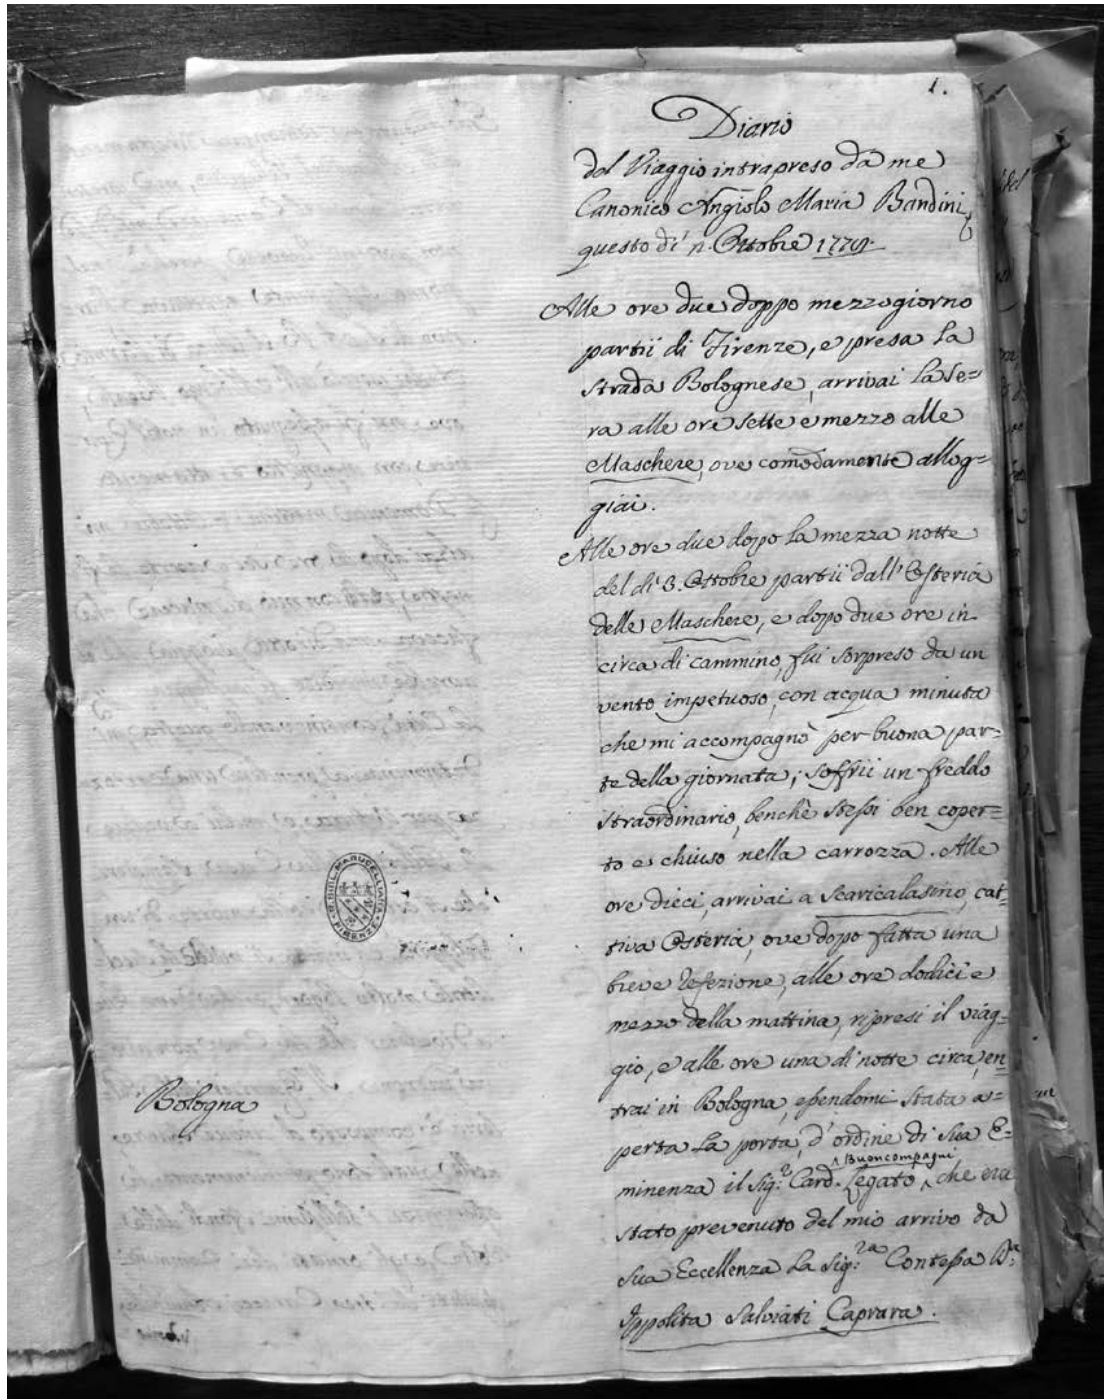 1.
Diario
del Viaggio intrapreso da me
Canonico Angiolo Maria Bandini
questo di' Ottobre
Alle ore due doppo mezzogiorno
partii di Firenze, e presa la
strada Bolognese, arrivai la se=
ra alle ore sette e mezzo alle
Maschere, ove comodamente allog=
giai.
Alle ore due dopo la mezza notte
del di' 3. Ottobre partii dall' Osteria
delle Maschere, e dopo due ore in
circa di cammino, fui sorpreso da un
vento impetuoso, con acqua minuta
che mi accompagnò per buona par=
te della giornata; soffrii un freddo
straordinario, benchè stessi ben coper=
to e chiuso nella carrozza. Alle
ore dieci, arrivai a Scaricalasino, cat=
tiva Osteria, ove dopo fatta una
breve refezione, alle ore dodici e
mezzo della mattina, ripresi il viag=
gio, e alle ore una di notte circa, en
trai in Bologna, essendomi stata a=
perta la porta, d'ordine di Sua E=
minenza il Sig.r Card. Legato ^ Buoncompagni, che era
stato prevenuto del mio arrivo da
Sua Eccellenza la Sig.ra Contessa D.a
Ippolita Salviati Caprara.
Bologna
R. BIBL. MARUCELLIANA
FIRENZE